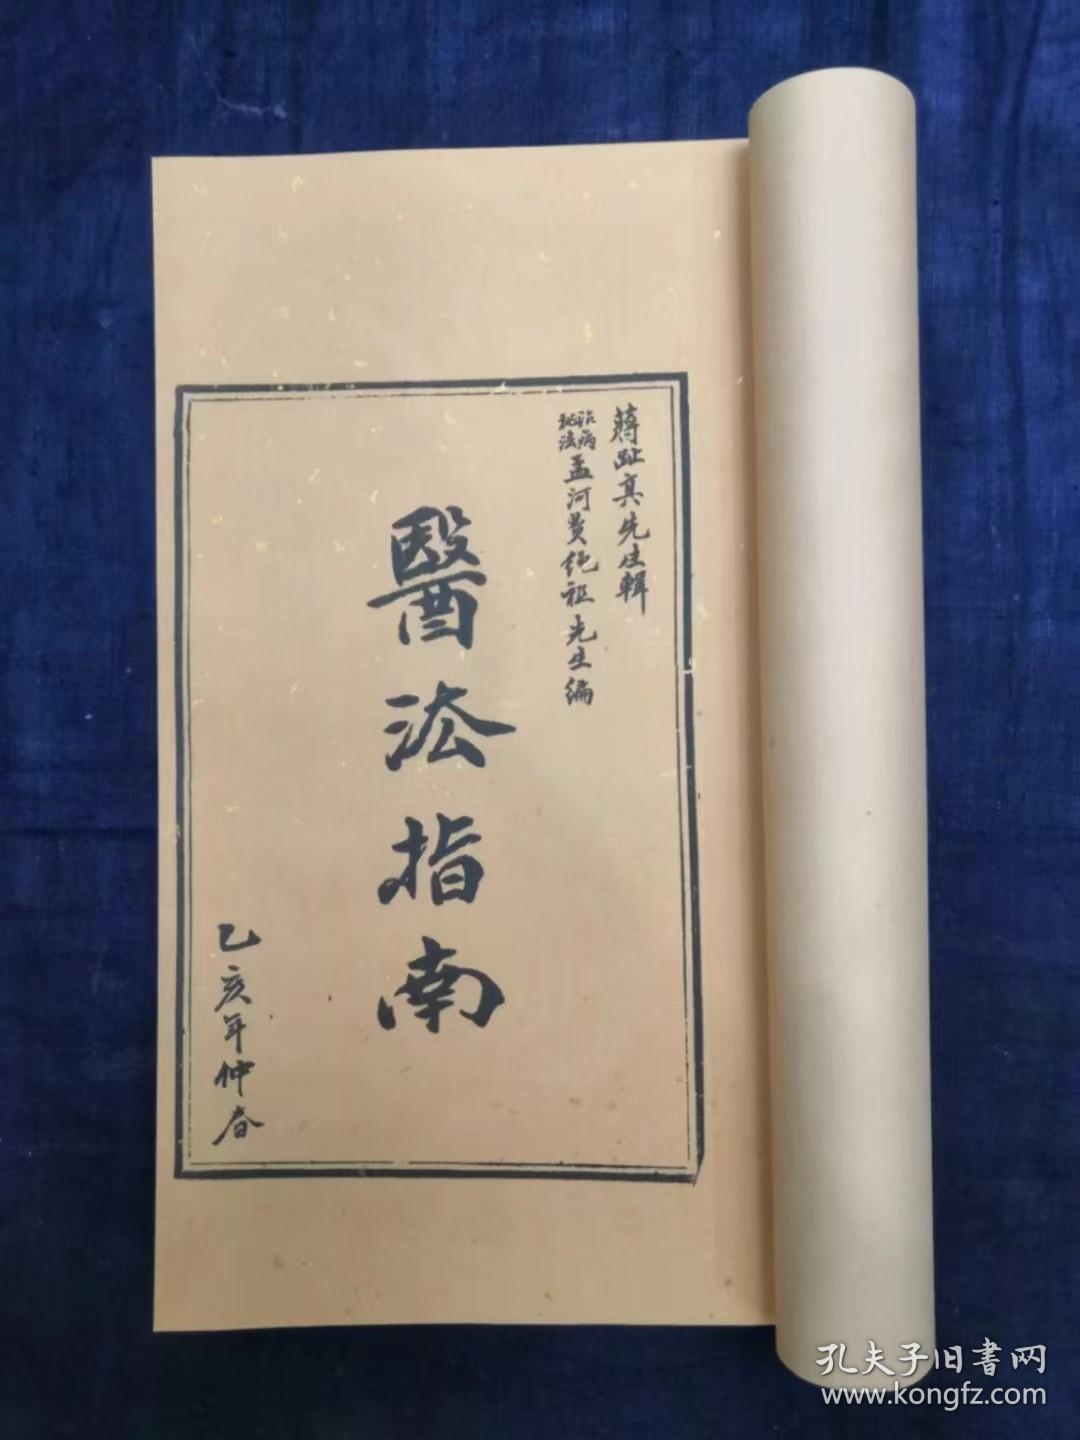 蔣趾真先生輯
治病
祕法
孟河費繩祖先生編
醫法指南
乙亥年仲春
孔夫子旧書网
www.kongfz.com